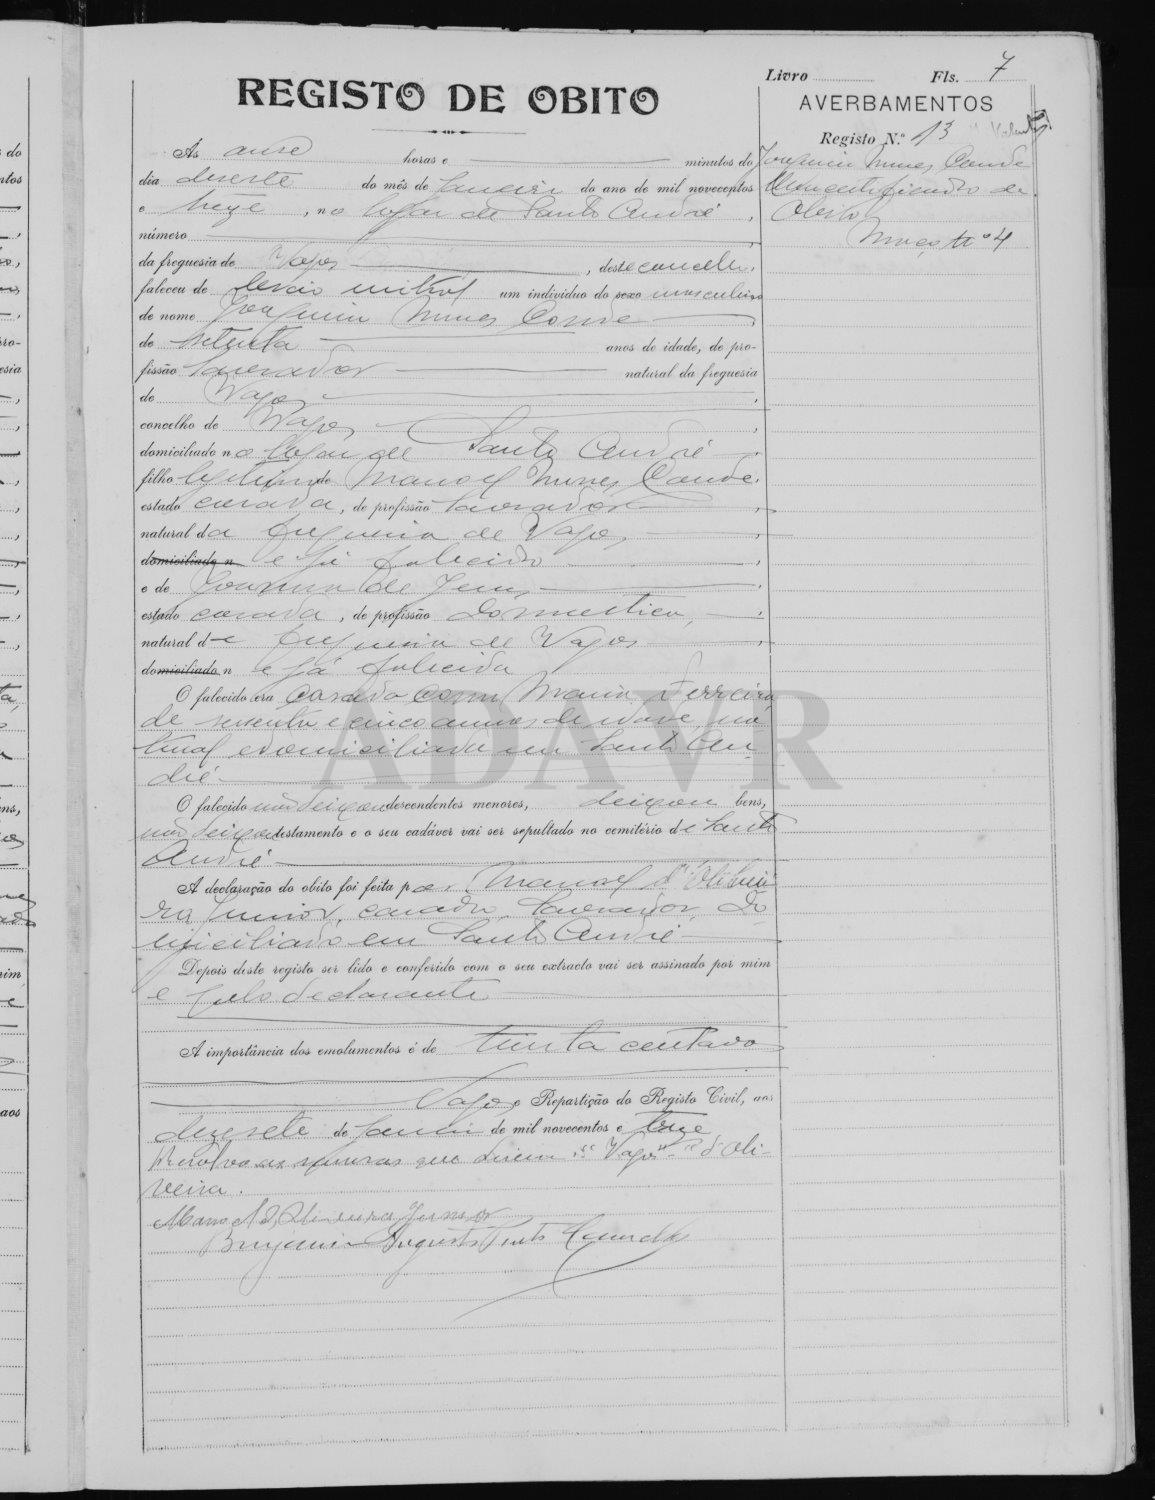 Livro Fls. 7
REGISTO DE OBITO
AVERBAMENTOS
Registo N.º 13
Joaquim Nunes Conde
de
Obito
Maço nº 4
As onze horas e minutos do
dia deseste do mês de Janeiro do ano de mil novecentos
e treze, no logar de Santo André,
número
da freguesia de Vagos, deste concelho,
faleceu de lesão mitral um individuo do sexo masculino
de nome Joaquim Nunes Conde
de setenta anos de idade, de pro-
fissão lavrador natural da freguesia
de Vagos,
concelho de Vagos,
domiciliado no logar de Santo André
filho legitimo de Manoel Nunes Conde,
estado casado, de profissão lavrador,
natural da freguesia de Vagos,
domiciliado n e já falecido,
e de Joanna de Jesus,
estado casada, de profissão domestica,
natural de freguesia de Vagos,
domiciliado n e já falecida
O falecido era casado com Maria Ferreira
de sessenta e cinco annos de idade, na-
tural e domiciliada em Santo An-
dré
O falecido não deixou descendentes menores, deixou bens,
não deixou testamento e o seu cadáver vai ser sepultado no cemitério de Santo
André
A declaração do obito foi feita por Manoel d'Olivei-
ra Junior, casado, lavrador, do-
miciliado em Santo André
Depois deste registo ser lido e conferido com o seu extracto vai ser assinado por mim
e pelo declarante
A importância dos emolumentos é de trinta centavos
Vagos e Repartição do Registo Civil, aos
dezesete de Janeiro de mil novecentos e treze
Resalvo as rasuras que dizem "Vagos" "d'Oli-
veira.
Manoel d'Oliveira Junior
Benjamim Augusto
ADAVR